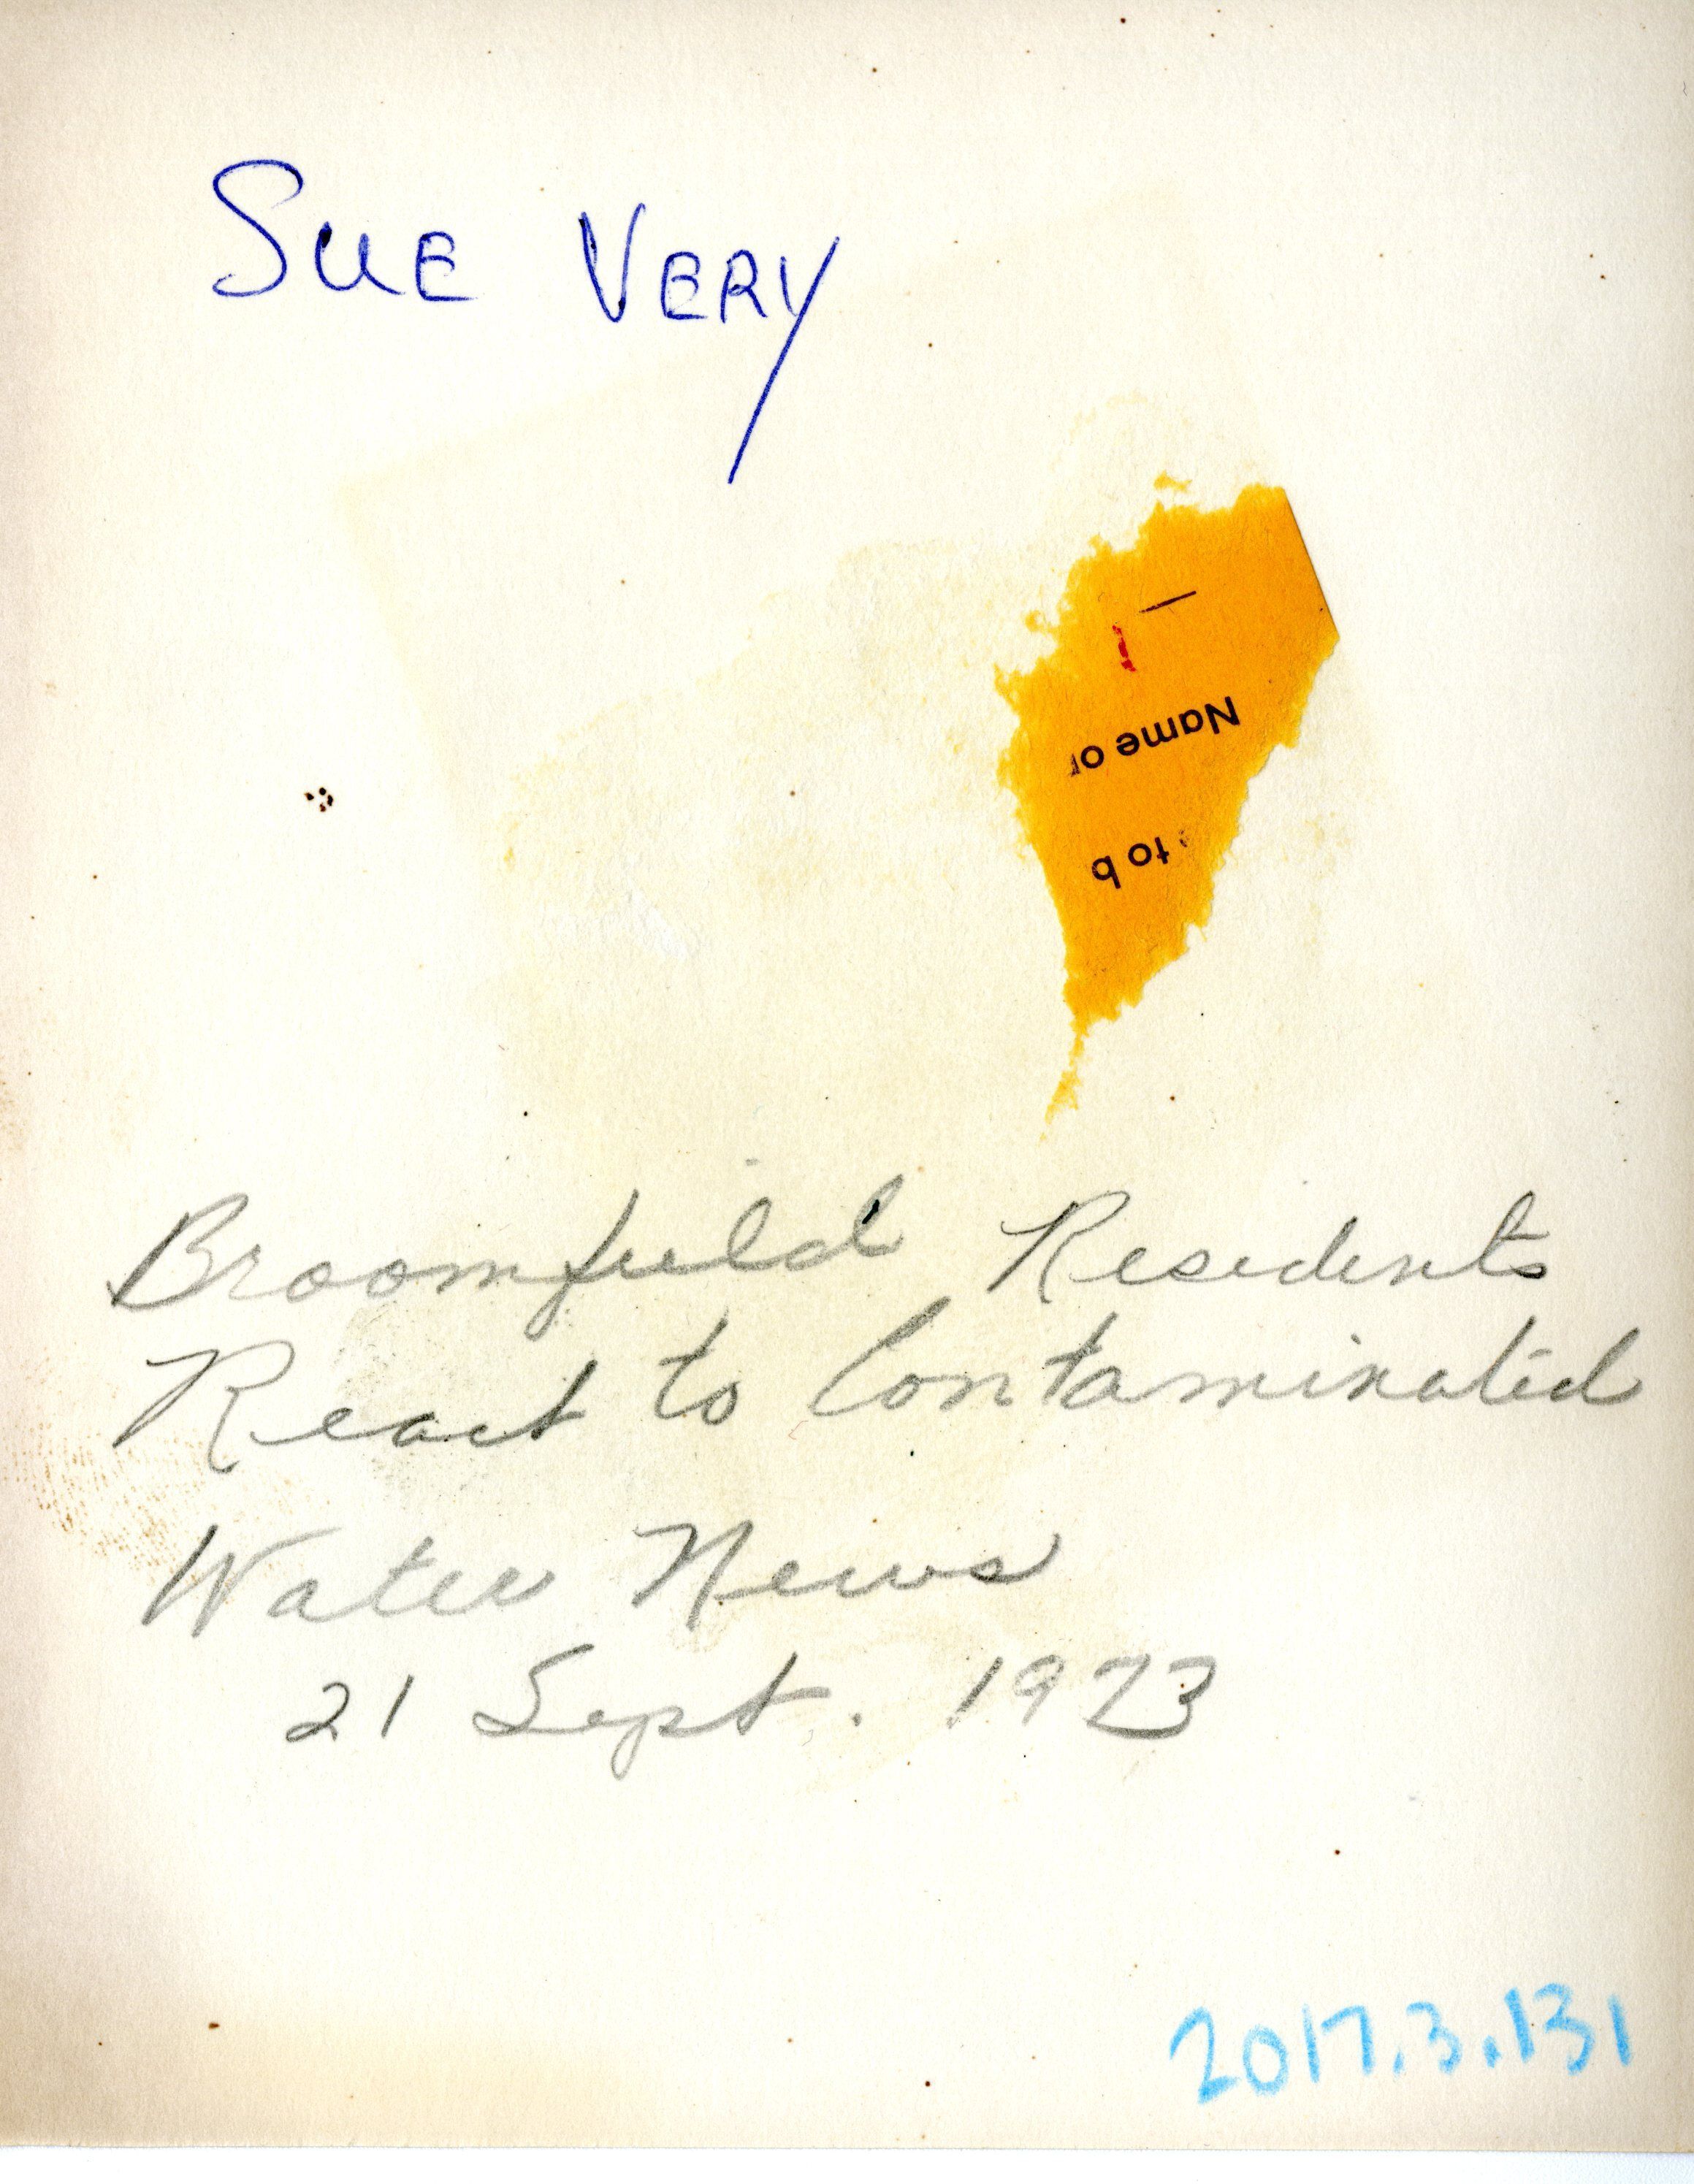 SUE VERY
Name or
to b
Broomfield Residents
React to Contaminated
Water News
21 Sept. 1973
2017.3.131